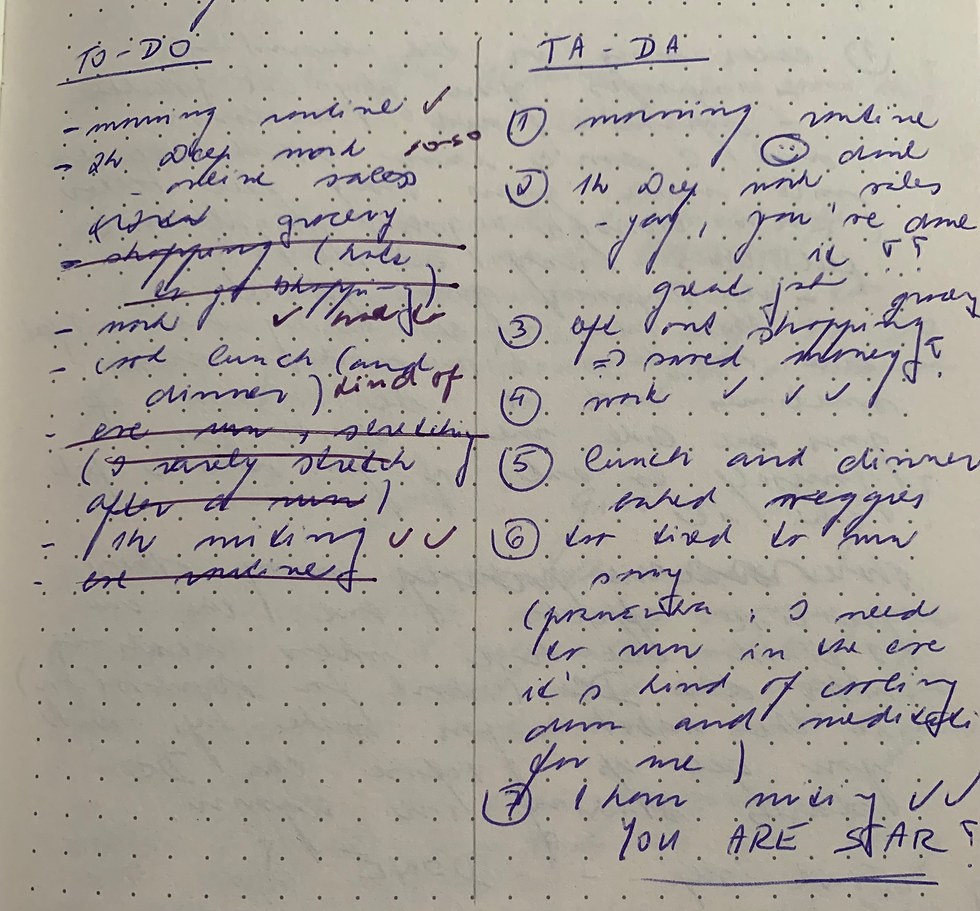 TO-DO
- morning routine ✓
- 1h Deep work so-so
- online sales
grocery
- shopping (hate
to go shopping)
- work ✓
- cook lunch (and
dinner) kind of
- eve run, stretching
(I rarely stretch
after a run)
- 1h writing ✓✓
- eve routine
TA-DA
① morning routine
☺ done
② 1h Deep work sales
- yay, you're done
it !!
great job
grocery
③ out shopping
=> saved money!
④ work ✓ ✓ ✓
⑤ lunch and dinner
baked veggies
⑥ too tired to run
sorry
( : I need
to run in the eve
it's kind of cooling
down and meditati
for me)
⑦ 1 hour writing ✓✓
YOU ARE STAR!